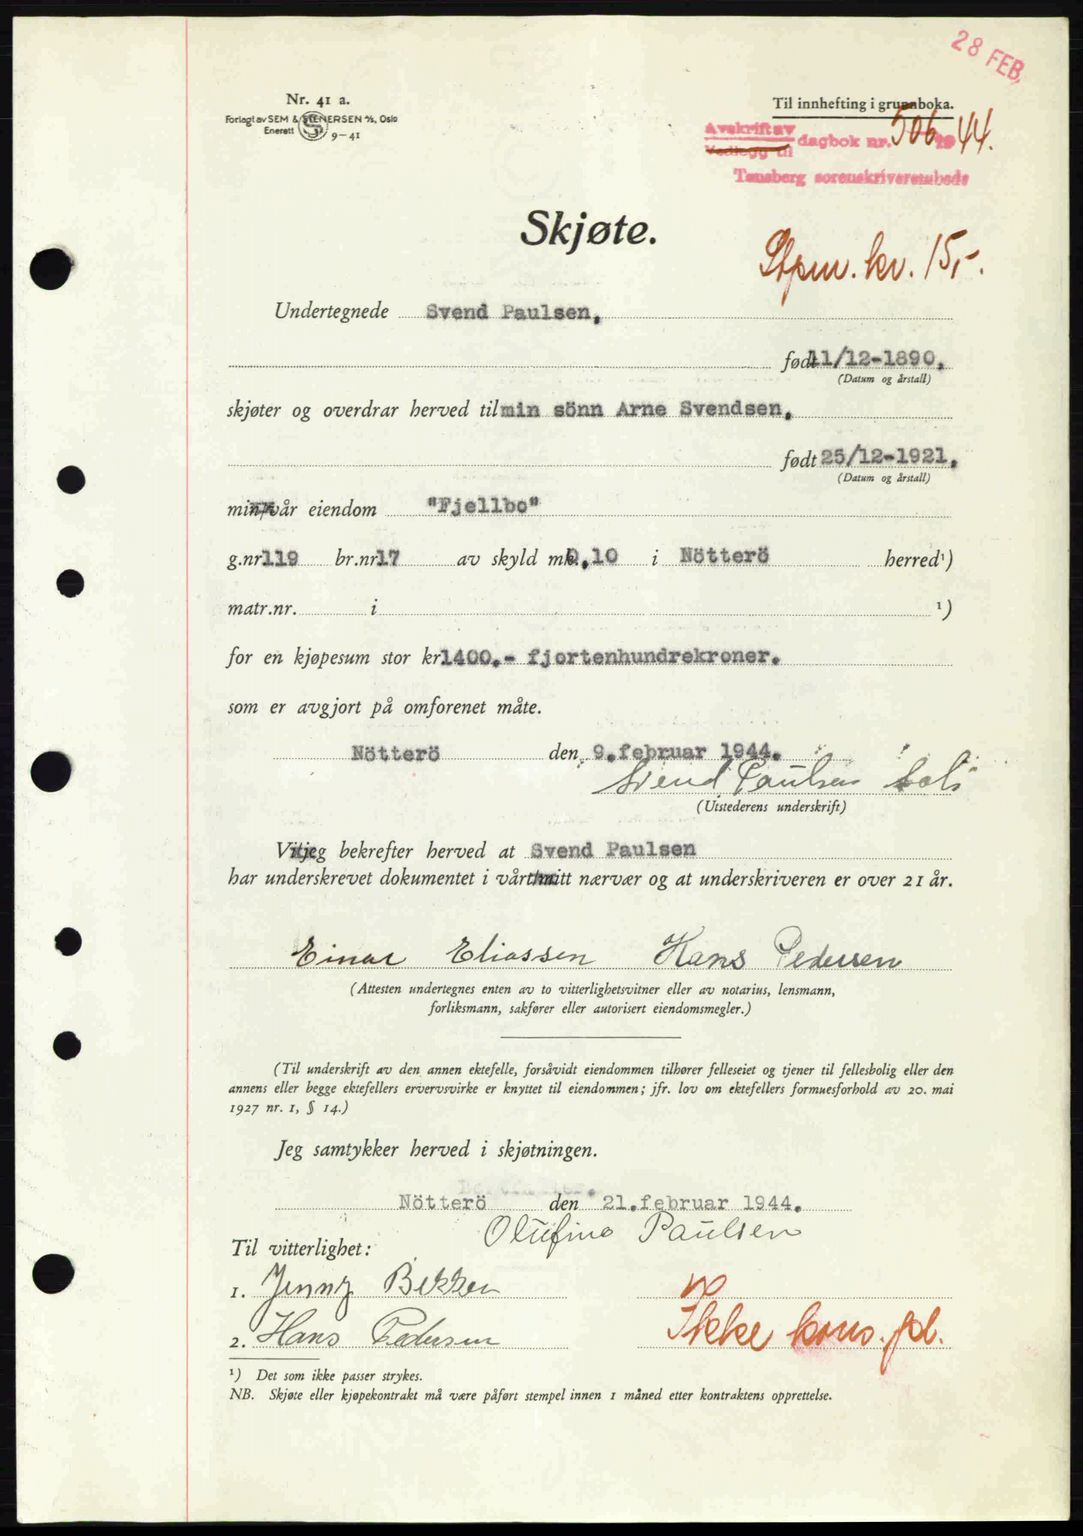 28 FEB.
Nr. 41 a.
Forlagt av SEM & STENERSEN A/S, Oslo
Enerett S 9-41
Til innhefting i grunnboka.
Avskrift av
Vedlegg til dagbok nr. 506 1944.
Tønsberg sorenskriverembede
Skjøte.
Stpm. kr. 15,-.
Undertegnede Svend Paulsen,
født 11/12-1890,
(Datum og årstall)
skjøter og overdrar herved til min sönn Arne Svendsen,
født 25/12-1921,
(Datum og årstall)
min/vår eiendom "Fjellbo"
g.nr. 119 br.nr. 17 av skyld mk. 0,10 i Nötterö herred¹)
matr.nr. i ¹)
for en kjøpesum stor kr. 1400.- fjortenhundrekroner.
som er avgjort på omforenet måte.
Nötterö den 9.februar 1944.
Svend Paulsen
(Utstederens underskrift)
Vi/jeg bekrefter herved at Svend Paulsen
har underskrevet dokumentet i vårt/mitt nærvær og at underskriveren er over 21 år.
Einar Eliassen Hans Pedersen
(Attesten undertegnes enten av to vitterlighetsvitner eller av notarius, lensmann,
forliksmann, sakfører eller autorisert eiendomsmegler.)
(Til underskrift av den annen ektefelle, forsåvidt eiendommen tilhører felleseiet og tjener til fellesbolig eller den
annens eller begge ektefellers ervervsvirke er knyttet til eiendommen; jfr. lov om ektefellers formuesforhold av 20. mai
1927 nr. 1, § 14.)
Jeg samtykker herved i skjøtningen.
Nötterö den 21.februar 1944.
Olufine Paulsen
Til vitterlighet:
1. Jenny Bekken
2. Hans Pedersen
Ikke kons. pl.
¹) Det som ikke passer strykes.
NB. Skjøte eller kjøpekontrakt må være påført stempel innen 1 måned etter kontraktens opprettelse.